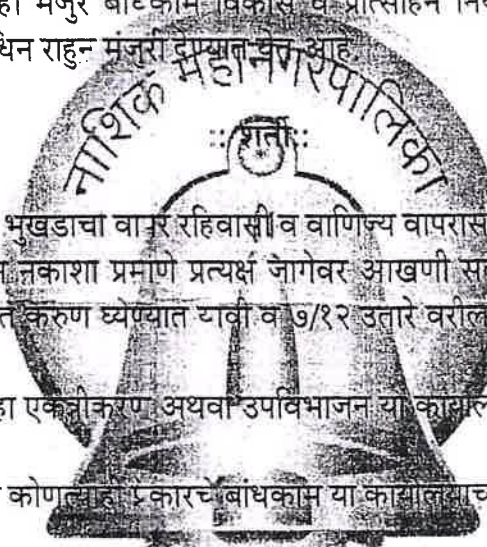 हा मंजुर बांधकाम विकास व प्रोत्साहन निय
धिन राहुन मंजुरी देण्यात येत आहे.
नाशिक महानगरपालिका
:: शर्ती ::
भुखडाचा वापर रहिवासी व वाणिज्य वापरास
नकाशा प्रमाणे प्रत्यक्ष जागेवर आखणी स
त करुण घ्येण्यात यावी व ७/१२ उतारे वरील
हा एकत्रीकरण अथवा उपविभाजन या कार्याल
कोणत्याही प्रकारचे बांधकाम या कार्यालयाच